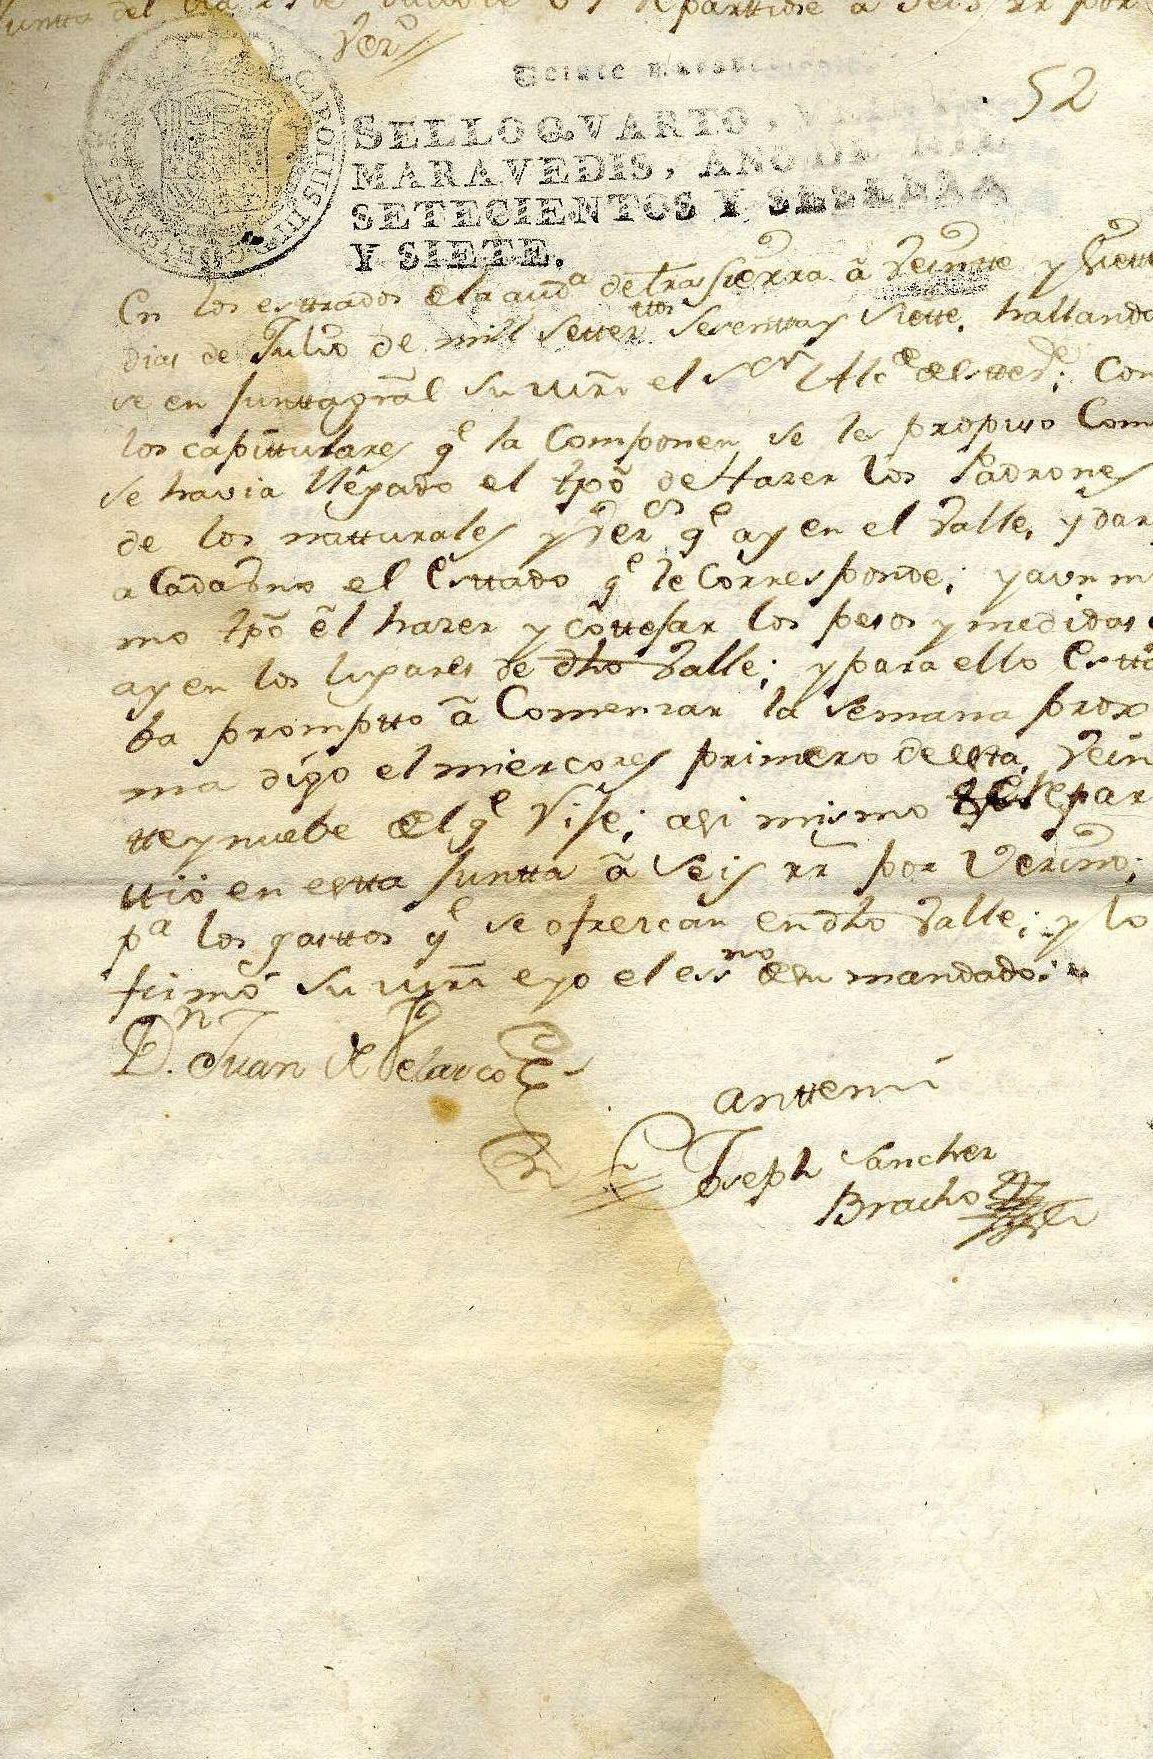 Juntta del dia 27 de Julio de 67 Repartiose a seis rr por
Vecº
Veinte maravedis.
52
CAROLUS III D G
SELLO QVARTO, V
MARAVEDIS, AÑO DE MIL
SETECIENTOS Y SESENTA
Y SIETE.
En los esttrados de la audª de trasSierra â Veintte y Siette
dias de Julio de mill Settettos Sesentta y Siette, hallando
se en Juntta grāl Su mrd el Sr Alce de estte Ve; Con
los capitturlares qe la Componen, se les propuso Como
se havia llegado el tpō de Hazer los Padrones
de los natturales y Vecos qe ay en el Valle, y dar
a Cada Uno el Esttado qe le Corresponde; y a un mis
mo tpō êl hazer y cottejar los pesos y medidas q
ay en los lugares de dho Valle; y para ello Estta
ba promptto â Comenzar la semana proxi
ma digo el miercores primero de estta, Vein
tte y nuebe del qe Vije; asi mismo se Repar
ttiò en estta Juntta â Seis rr por Vecino;
pª los gasttos qe se ofrezcan en dho Valle; y lo
firmó Su mrd e yo el essno de su mandado:
Dn Juan de Velarco
Anttemi
Joseph Sanchez
Bracho